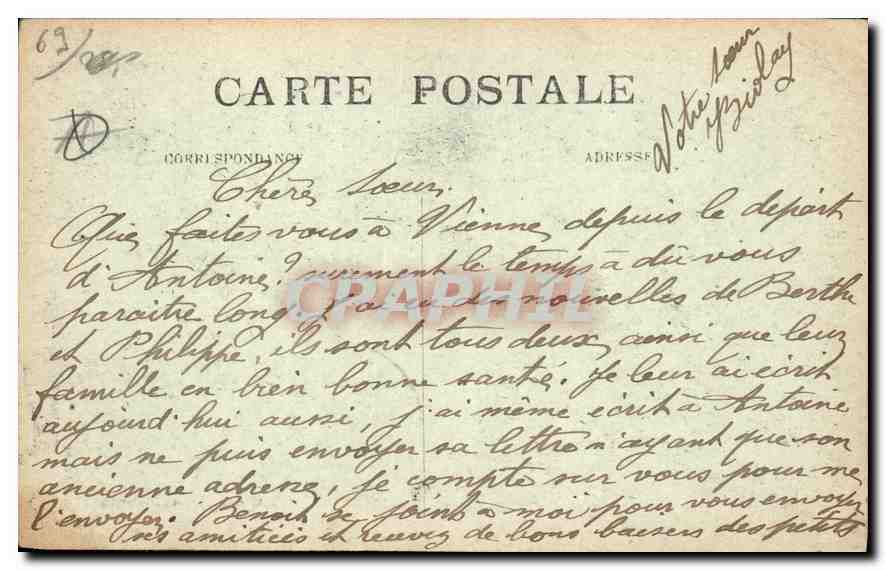 69
CARTE POSTALE
CORRESPONDANCE
ADRESSE
Votre sœur
Biolay
Chère sœur.
Que faites vous à Vienne, depuis le départ
d'Antoine? surement le temps à dû vous
paraitre long. J'ai eu des nouvelles de Berthe
et Philippe, ils sont tous deux, ainsi que leur
famille en bien bonne santé. Je leur ai écrit
aujourd'hui aussi, j'ai même écrit à Antoine
mais ne puis envoyer sa lettre n'ayant que son
ancienne adresse, je compte sur vous pour me
l'envoyer. Benoit se joint à moi pour vous envoyer
ses amitiées et recevez de bons baisers des petits
CPAPHIL